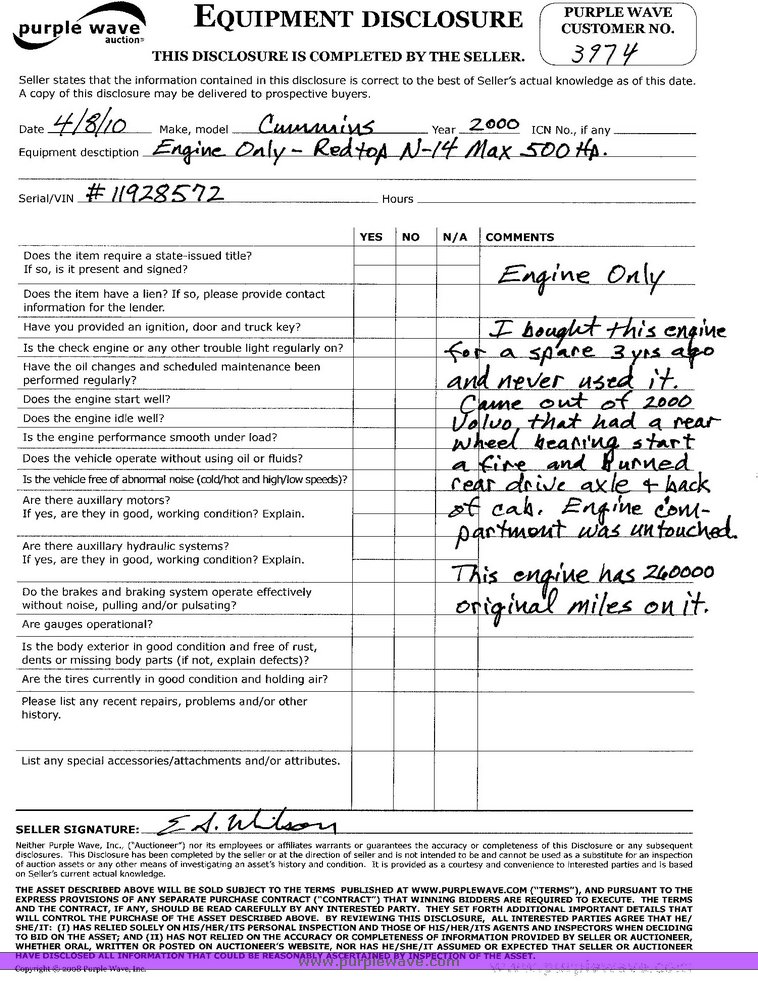 purple wave
auction
EQUIPMENT DISCLOSURE
PURPLE WAVE
CUSTOMER NO.
3974
THIS DISCLOSURE IS COMPLETED BY THE SELLER.
Seller states that the information contained in this disclosure is correct to the best of Seller's actual knowledge as of this date.
A copy of this disclosure may be delivered to prospective buyers.
Date 4/8/10 Make, model Cummins Year 2000 ICN No., if any
Equipment desctiption Engine Only - Redtop N-14 Max 500 Hp.
Serial/VIN #11928572 Hours
YES NO N/A COMMENTS
Does the item require a state-issued title?
If so, is it present and signed?
Engine Only
Does the item have a lien? If so, please provide contact
information for the lender.
Have you provided an ignition, door and truck key?
I bought this engine
Is the check engine or any other trouble light regularly on?
for a spare 3 yrs ago
Have the oil changes and scheduled maintenance been
performed regularly?
and never used it.
Does the engine start well?
Came out of 2000
Does the engine idle well?
Volvo, that had a rear
Is the engine performance smooth under load?
wheel bearing start
Does the vehicle operate without using oil or fluids?
a fire and burned
Is the vehicle free of abnormal noise (cold/hot and high/low speeds)?
rear drive axle + back
Are there auxillary motors?
If yes, are they in good, working condition? Explain.
of cab. Engine com-
partment was untouched.
Are there auxillary hydraulic systems?
If yes, are they in good, working condition? Explain.
This engine has 260000
Do the brakes and braking system operate effectively
without noise, pulling and/or pulsating?
original miles on it.
Are gauges operational?
Is the body exterior in good condition and free of rust,
dents or missing body parts (if not, explain defects)?
Are the tires currently in good condition and holding air?
Please list any recent repairs, problems and/or other
history.
List any special accessories/attachments and/or attributes.
SELLER SIGNATURE: E A. Wilson
Neither Purple Wave, Inc., ("Auctioneer") nor its employees or affiliates warrants or guarantees the accuracy or completeness of this Disclosure or any subsequent
disclosures. This Disclosure has been completed by the seller or at the direction of seller and is not intended to be and cannot be used as a substitute for an inspection
of auction assets or any other means of investigating an asset's history and condition. It is provided as a courtesy and convenience to interested parties and is based
on Seller's current actual knowledge.
THE ASSET DESCRIBED ABOVE WILL BE SOLD SUBJECT TO THE TERMS PUBLISHED AT WWW.PURPLEWAVE.COM ("TERMS"), AND PURSUANT TO THE
EXPRESS PROVISIONS OF ANY SEPARATE PURCHASE CONTRACT ("CONTRACT") THAT WINNING BIDDERS ARE REQUIRED TO EXECUTE. THE TERMS
AND THE CONTRACT, IF ANY, SHOULD BE READ CAREFULLY BY ANY INTERESTED PARTY. THEY SET FORTH ADDITIONAL IMPORTANT DETAILS THAT
WILL CONTROL THE PURCHASE OF THE ASSET DESCRIBED ABOVE. BY REVIEWING THIS DISCLOSURE, ALL INTERESTED PARTIES AGREE THAT HE/
SHE/IT: (I) HAS RELIED SOLELY ON HIS/HER/ITS PERSONAL INSPECTION AND THOSE OF HIS/HER/ITS AGENTS AND INSPECTORS WHEN DECIDING
TO BID ON THE ASSET; AND (II) HAS NOT RELIED ON THE ACCURACY OR COMPLETENESS OF INFORMATION PROVIDED BY SELLER OR AUCTIONEER,
WHETHER ORAL, WRITTEN OR POSTED ON AUCTIONEER'S WEBSITE, NOR HAS HE/SHE/IT ASSUMED OR EXPECTED THAT SELLER OR AUCTIONEER
HAVE DISCLOSED ALL INFORMATION THAT COULD BE REASONABLY ASCERTAINED BY INSPECTION OF THE ASSET.
www.purplewave.com
Copyright © 2008 Purple Wave, Inc.
www.purplewave.com